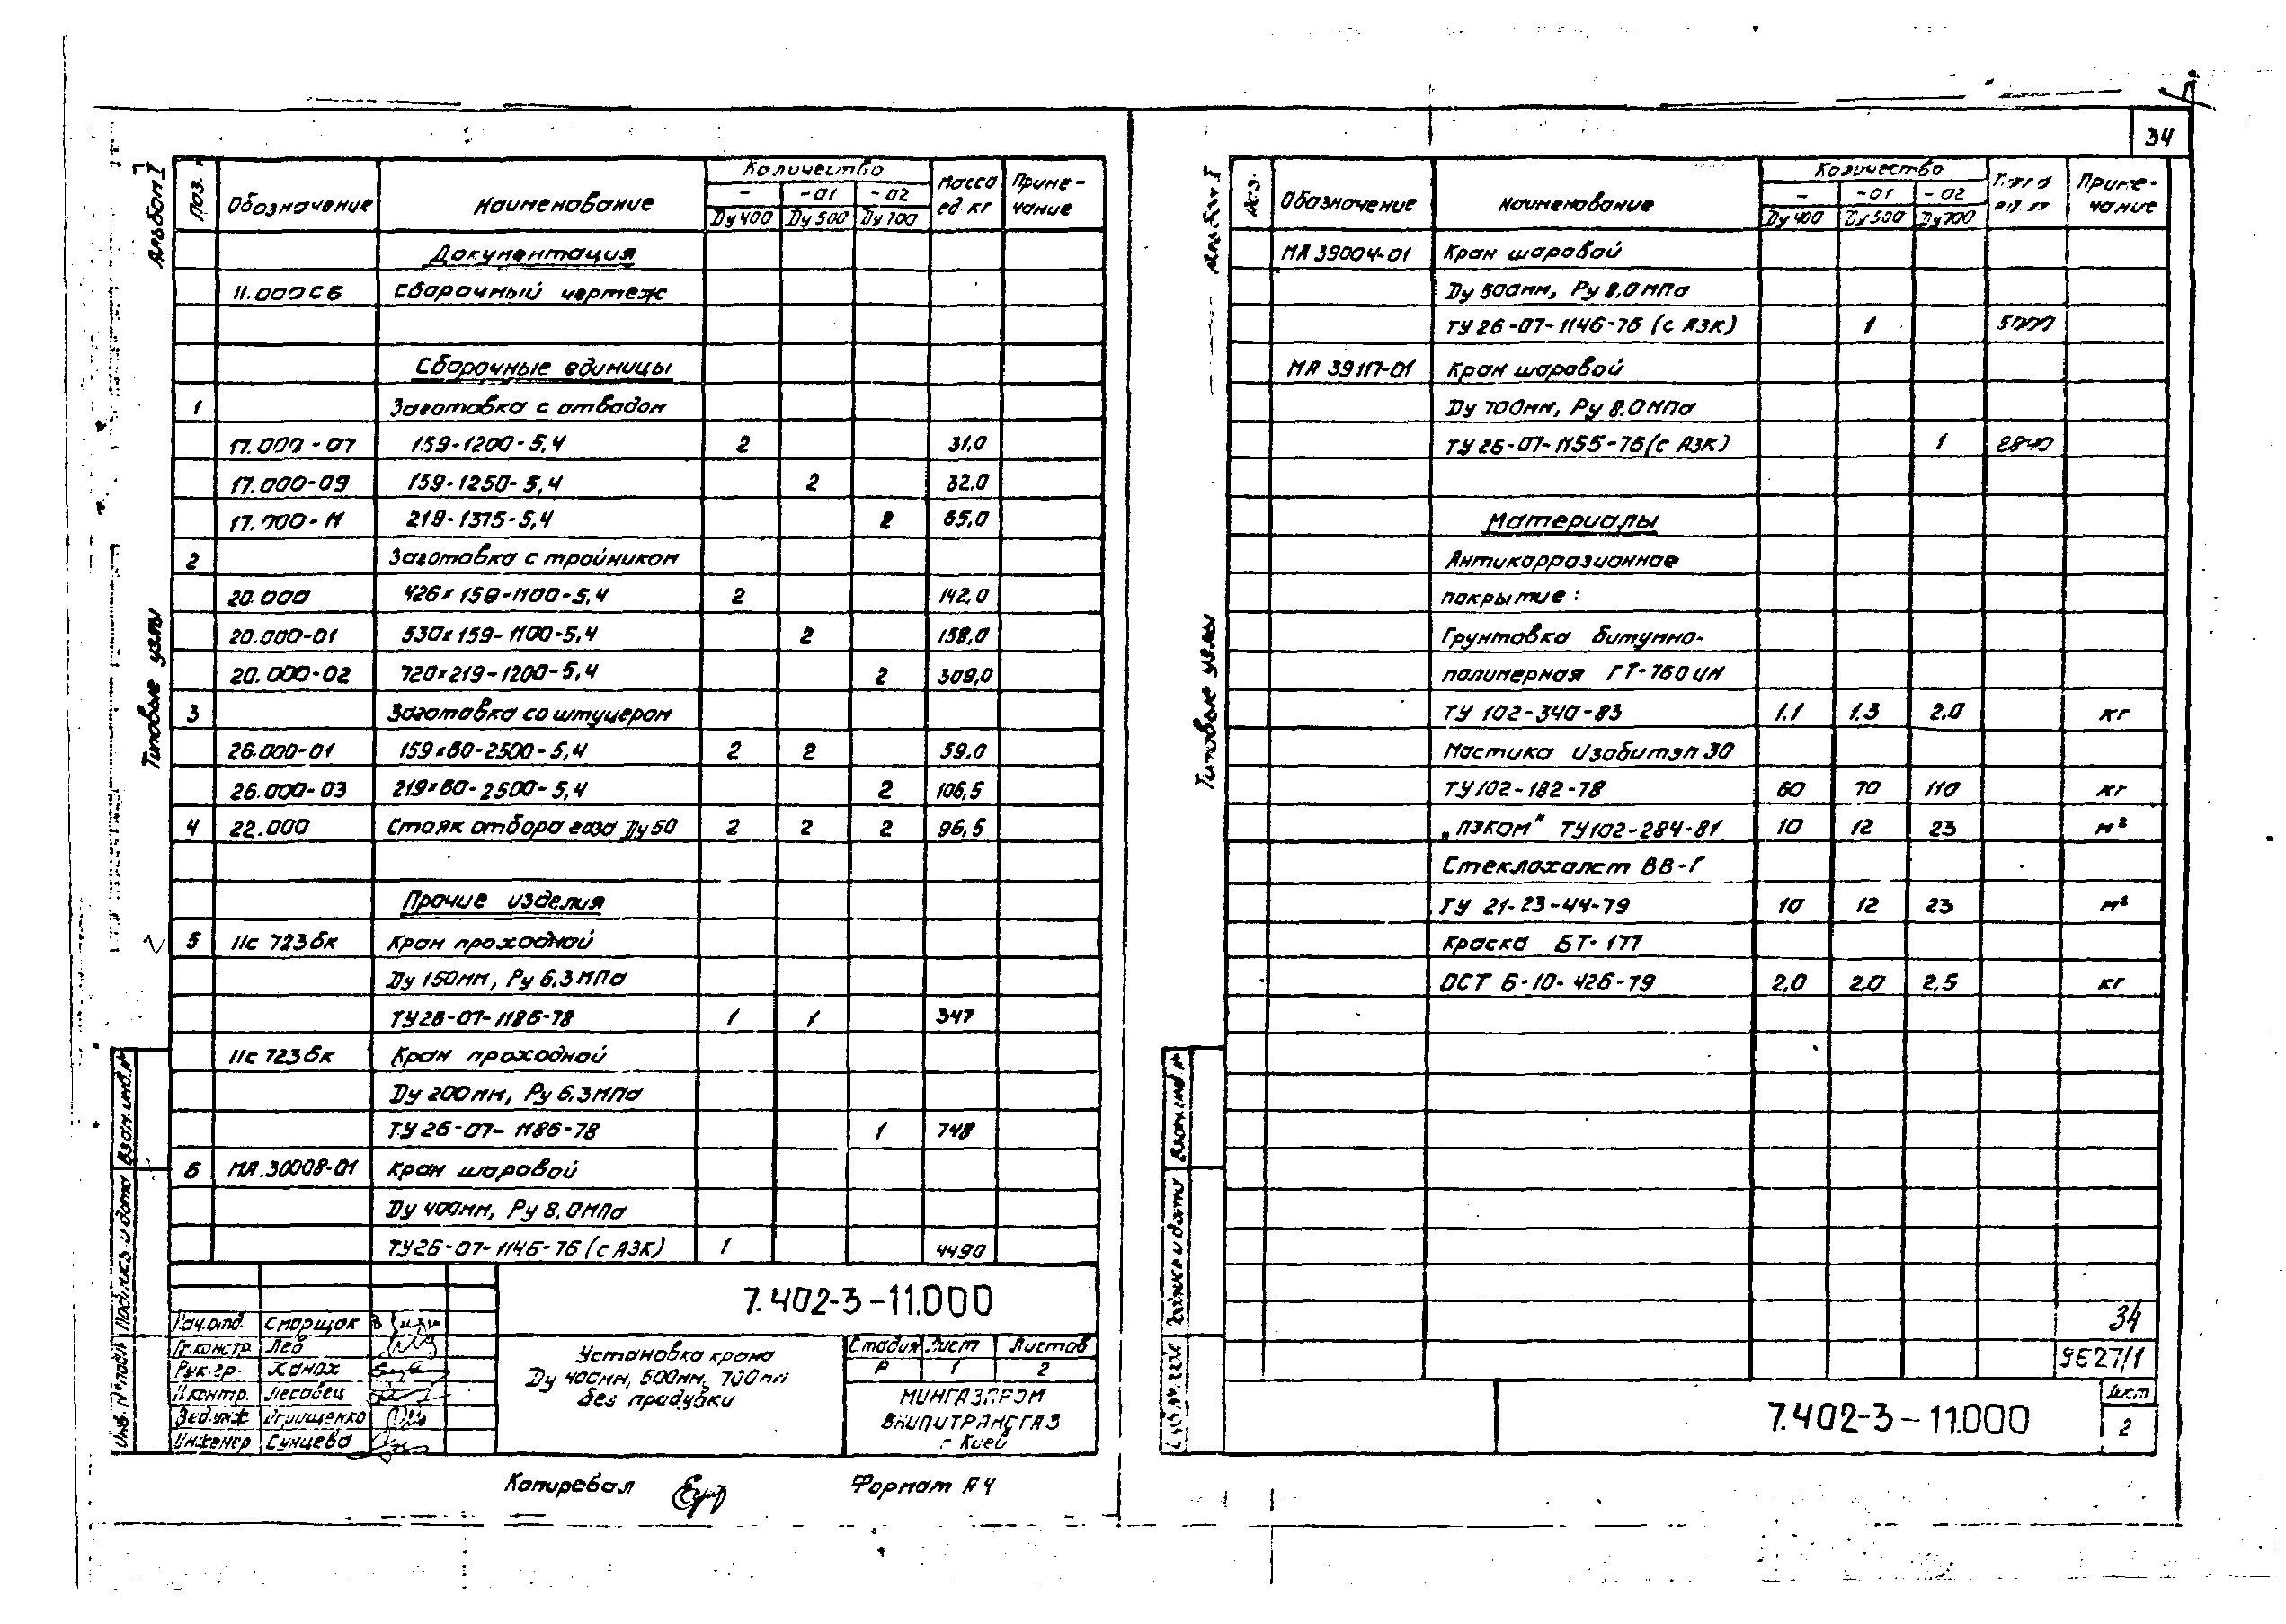 34
Альбом I
Типовые узлы
Поз. Обозначение Наименование Количество Масса ед. кг Приме-чание
- -01 -02
Ду 400 Ду 500 Ду 700
Документация
11.000СБ Сборочный чертеж
Сборочные единицы
1 Заготовка с отводом
17.000-07 159-1200-5,4 2 31,0
17.000-09 159-1250-5,4 2 32,0
17.000-11 219-1375-5,4 2 65,0
2 Заготовка с тройником
20.000 426х159-1100-5,4 2 142,0
20.000-01 530х159-1100-5,4 2 158,0
20.000-02 720х219-1200-5,4 2 309,0
3 Заготовка со штуцером
26.000-01 159х60-2500-5,4 2 2 59,0
26.000-03 219х60-2500-5,4 2 106,5
4 22.000 Стояк отбора газа Ду 50 2 2 2 96,5
Прочие изделия
5 11с 723бк Кран проходной
Ду 150мм, Ру 6,3 МПа
ТУ 26-07-1186-78 1 1 347
11с 723бк Кран проходной
Ду 200мм, Ру 6,3 МПа
ТУ 26-07-1186-78 1 748
6 МА.30008-01 Кран шаровой
Ду 400мм, Ру 8,0 МПа
ТУ 26-07-1146-76 (с АЗК) 1 4490
7.402-3-11.000
Нач.отд. Сморщок
Гл.констр. Лев
Рук.гр. Ханах
Н.контр. Лесовец
Вед.инж
Инженер Сунцева
Установка крана
Ду 400мм, 500мм, 700мм
без продувки
Стадия Лист Листов
Р 1 2
МИНГАЗПРОМ
ВНИПИТРАНСГАЗ
г. Киев
Инв. № подл. Подпись и дата Взам. инв. №
Копировал
Формат А4
Альбом I
Типовые узлы
Поз. Обозначение Наименование Количество Масса ед. кг Приме-чание
- -01 -02
Ду 400 Ду 500 Ду 700
МА 39004-01 Кран шаровой
Ду 500мм, Ру 8,0 МПа
ТУ 26-07-1146-76 (с АЗК) 1 5000
МА 39117-01 Кран шаровой
Ду 700мм, Ру 8,0 МПа
ТУ 26-07-1155-76 (с АЗК) 1 8840
Материалы
Антикоррозионное
покрытие:
Грунтовка битумно-
полимерная ГТ-760 ин
ТУ 102-340-83 1,1 1,3 2,0 кг
Мастика Изобитэп 30
ТУ 102-182-78 60 70 110 кг
„ПЭКОМ" ТУ102-284-81 10 12 23 м²
Стеклохолст ВВ-Г
ТУ 21-23-44-79 10 12 23 м²
Краска БТ-177
ОСТ 6-10-426-79 2,0 2,0 2,5 кг
34
9627/1
7.402-3-11.000
Лист
2
Подпись и дата Взам. инв. №